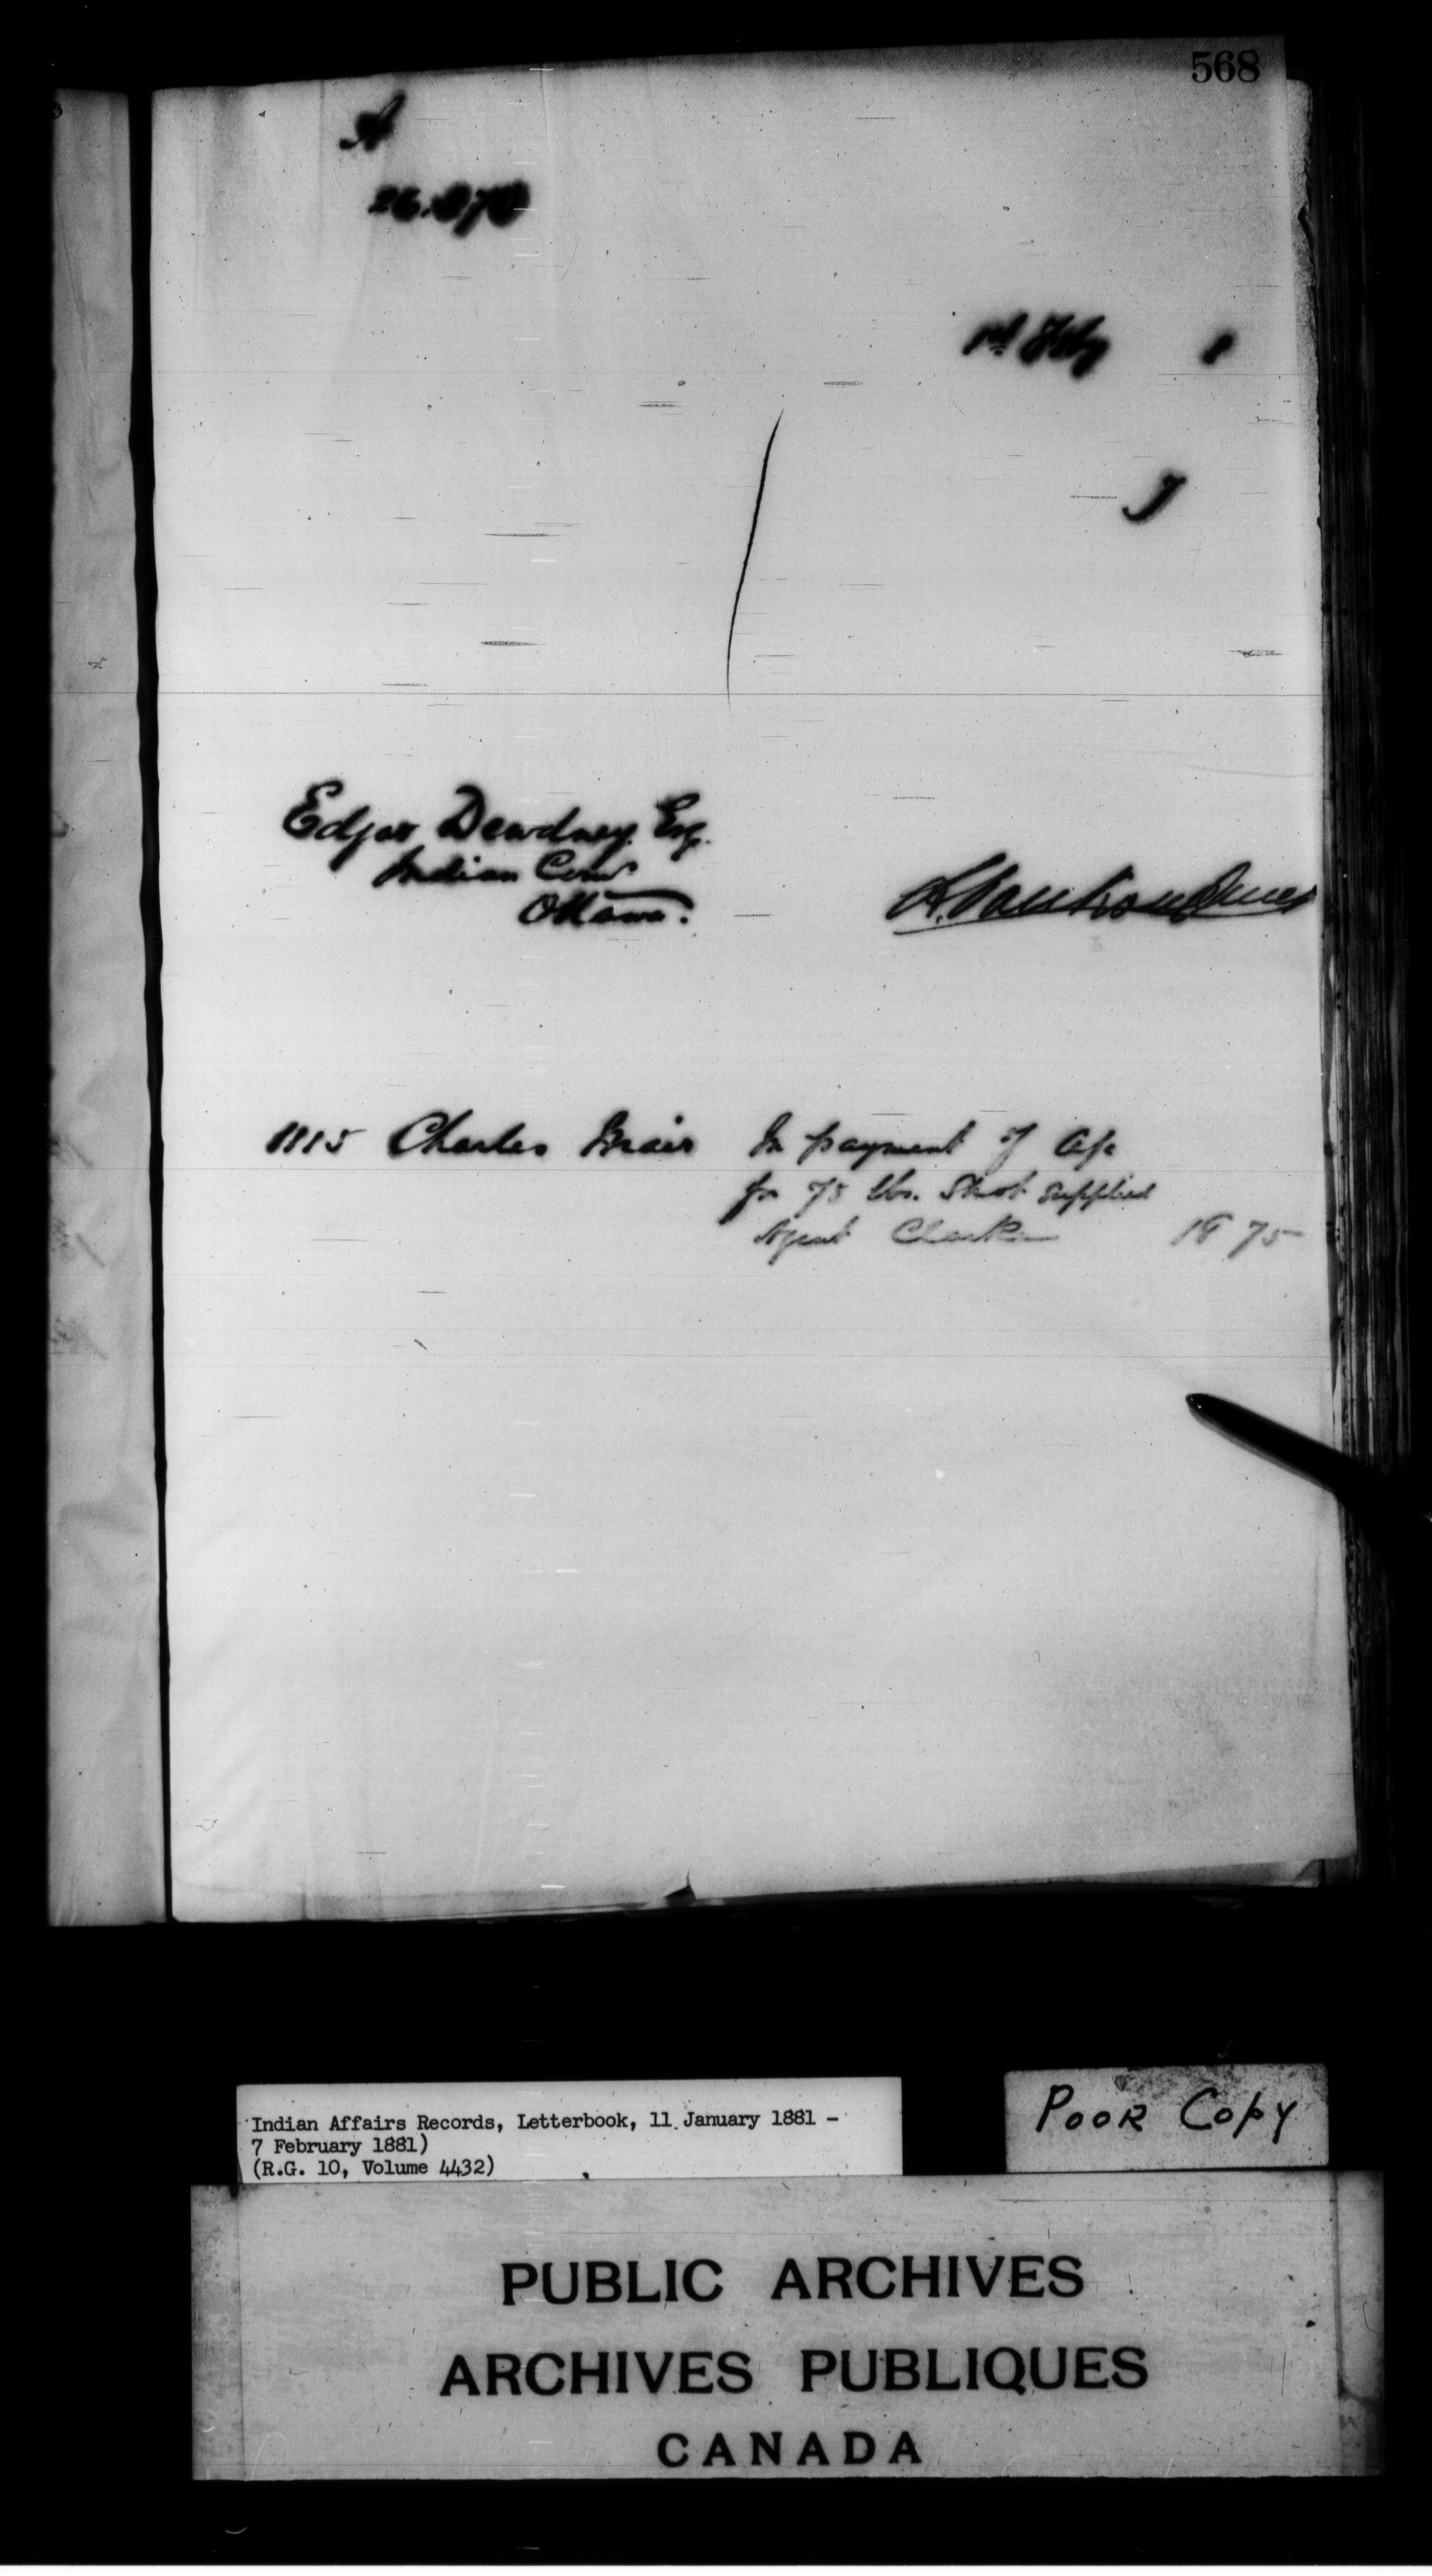 568
A
26.070
1st Feby 1
J
Edgar Dewdney Esq.
Indian Com
Ottawa.
L. Vankoughnet
1815 Charles Mair In payment of a/c
for 75 lbs. Shot supplied
Agent Clarke 18 75
Indian Affairs Records, Letterbook, 11 January 1881 -
7 February 1881)
(R.G. 10, Volume 4432)
POOR COPY
PUBLIC ARCHIVES
ARCHIVES PUBLIQUES
CANADA